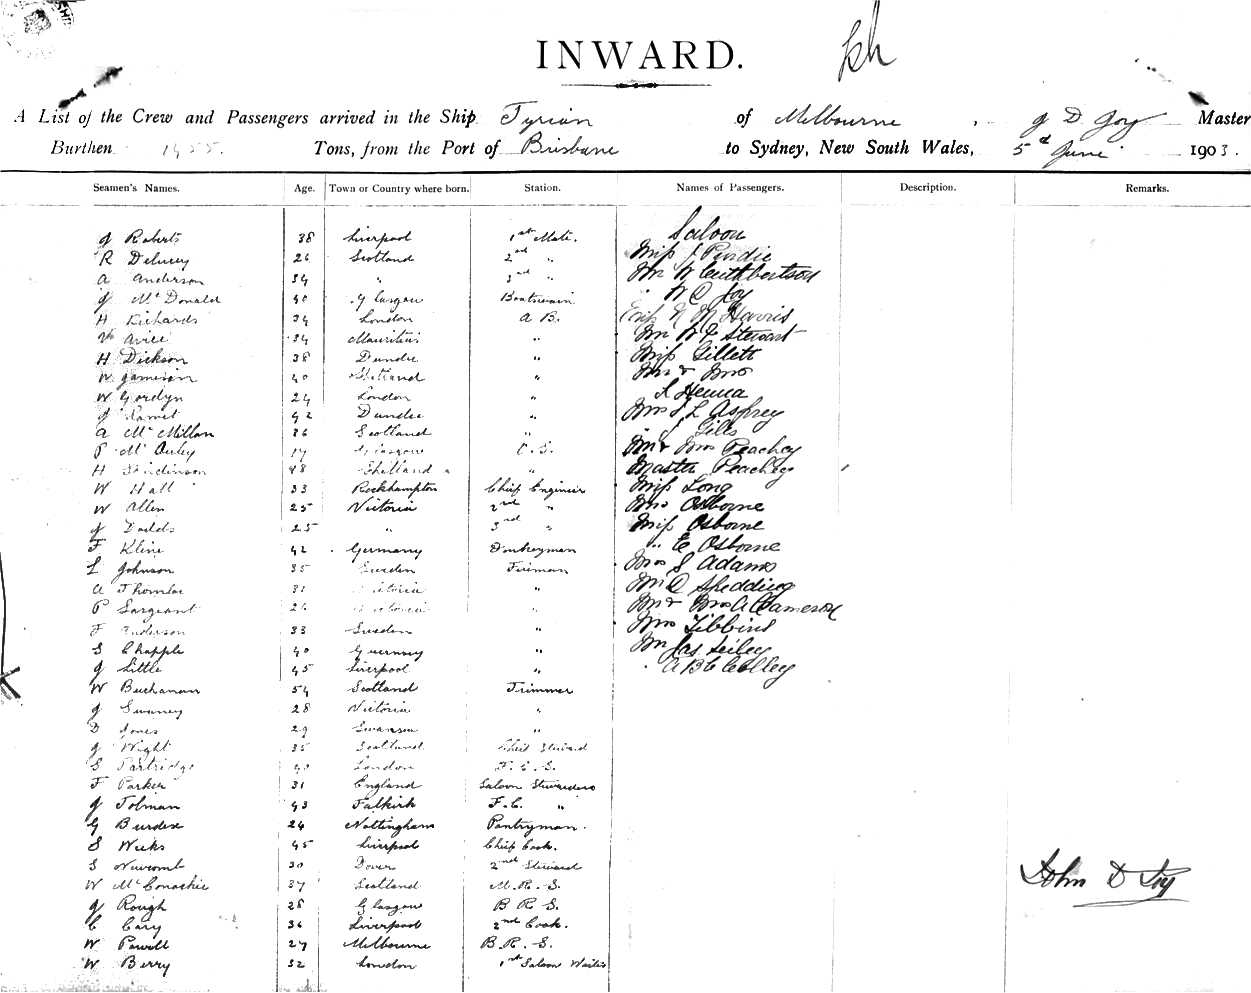 INWARD.
A List of the Crew and Passengers arrived in the Ship Tyrian of Melbourne, J D Joy Master
Burthen 1455. Tons, from the Port of Brisbane to Sydney, New South Wales, 5th June 1903.
Seamen's Names. Age. Town or Country where born. Station. Names of Passengers. Description. Remarks.
Saloon
J Roberts 38 Liverpool 1st Mate.
R 26 Scotland 2nd "
Miss J Purdie
A Anderson 34 " 3rd "
Mr W Cuthbertson
J McDonald 40 Glasgow Boatswain
" W D Joy
H Richards 34 London A B.
Harris
34 Mauritius "
Mr W F Stewart
H Dickson 38 Dundee "
Miss Gillett
W Jameson 40 Shetland "
Mr & Mrs
W Gordyn 24 London "
S Henna
J 42 Dundee "
Mrs S L Asprey
A McMillan 36 Scotland "
" J Gills
P McAuley 17 Glasgow O.S.
Mr & Mrs Peachey
H 48 Shetland "
Master Peachey
W Hall 33 Rockhampton Chief Engineer
Miss Long
W Allen 25 Victoria 2nd "
Mrs Osborne
J Dodds 25 " 3rd "
Miss Osborne
F Kline 42 Germany Donkeyman
" E Osborne
L Johnson 35 Sweden Fireman
Mrs S Adams
A 31 Victoria "
Mr C Shedding
P Sargeant 26 Victoria "
Mr & Mrs A Cameron
F Anderson 33 Sweden "
Mrs Tibbins
S Chapple 40 Guernsey "
Mr Jas Seiley
J Little 45 Liverpool "
" A B C Colley
W Buchanan 54 Scotland Trimmer
J Swaney 28 Victoria "
D Jones 29 Swansea "
J Wight 35 Scotland Chief Steward
S Partridge 40 London F.C.S.
F Parker 31 England Saloon Stewardess
J Tolman 43 Falkirk F.C. "
G Burdex 24 Nottingham Pantryman.
S Weeks 45 Liverpool Chief Cook.
S Newcomb 30 Dover 2nd Steward
W McConachie 37 Scotland M.R.S.
John D Joy
J Rough 28 Glasgow B R S.
C Cary 36 Liverpool 2nd Cook.
W Powell 27 Melbourne B.R.S.
W Berry 32 London 1st Saloon Waiter